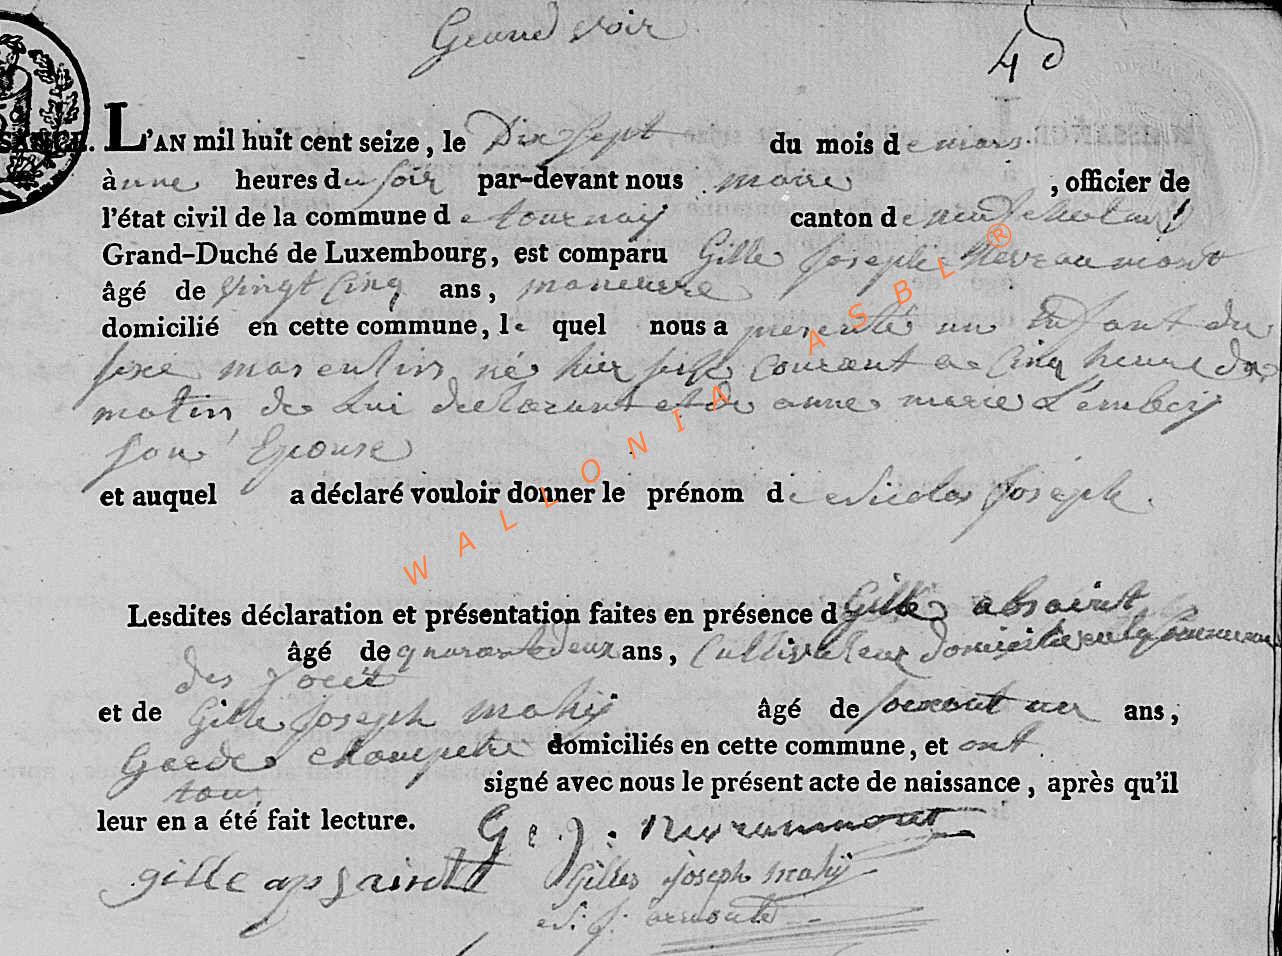 Grand voir
4
L'AN mil huit cent seize, le Dix Sept du mois de mars
à une heures du soir par-devant nous maire , officier de
l'état civil de la commune de tournay canton de neufchateau
Grand-Duché de Luxembourg, est comparu Gille Joseph Nevraumont
âgé de vingt Cinq ans, maneuvre
domicilié en cette commune, le quel nous a presenté un Enfant du
sexe masculin né hier sise Courant a Cinq heure du
matin de Lui declarant et de anne marie Lambery
son Epouse
et auquel a déclaré vouloir donner le prénom de Nicolas Joseph.
Lesdites déclaration et présentation faites en présence d Gille absaint
âgé de quarante deux ans, Cultivateur domicilié en la
et de Gille Joseph mahÿ âgé de ans,
Garde champetre domiciliés en cette commune, et ont
tous signé avec nous le présent acte de naissance, après qu'il
leur en a été fait lecture.
G. J. Nevraumont
gille apsaint
Gilles joseph mahÿ
WALLONIA ASBL ®